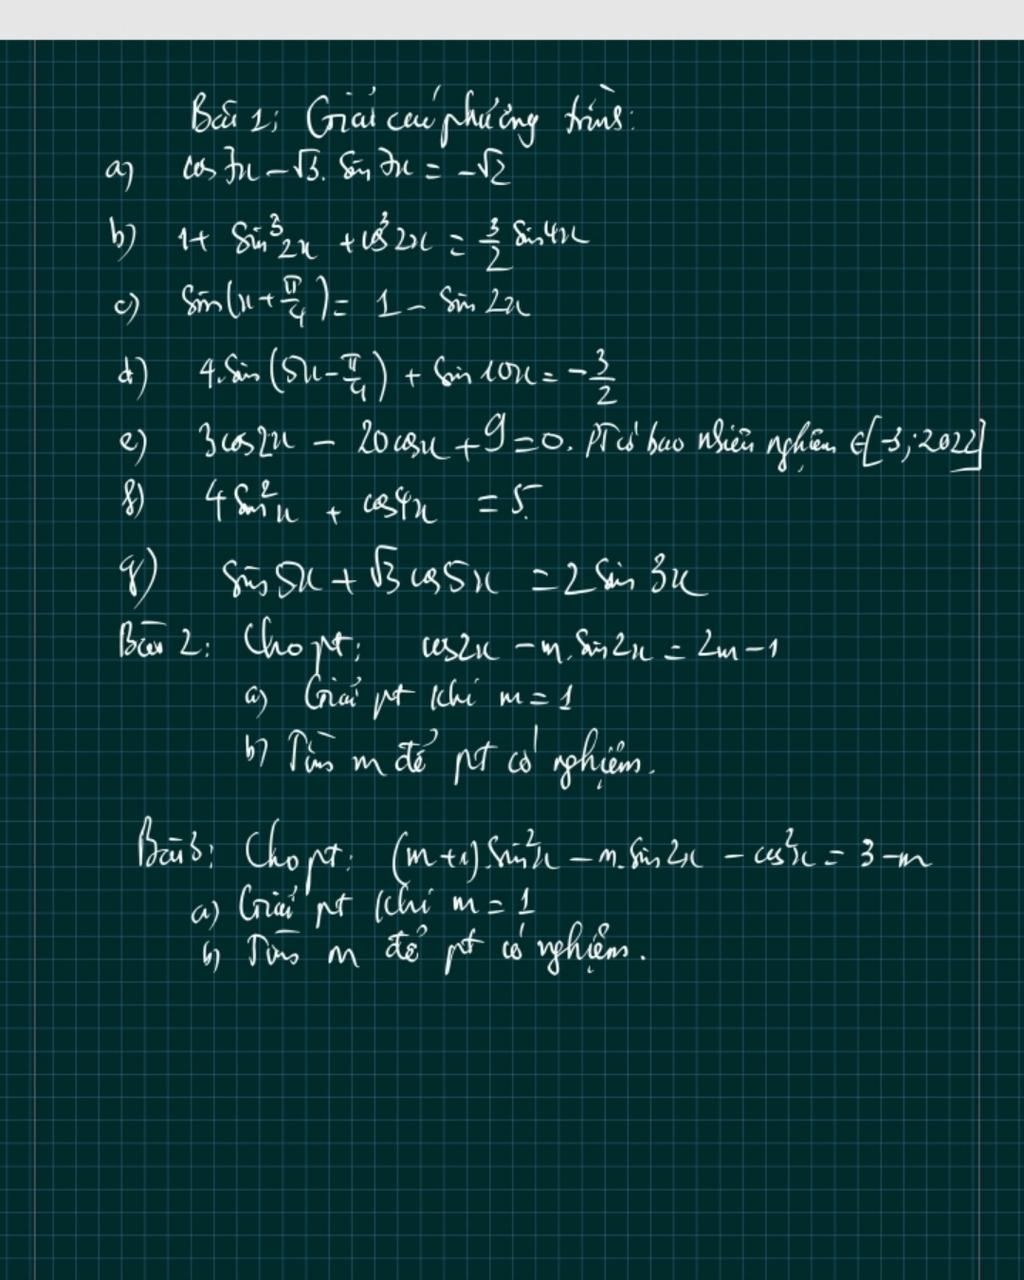 Bài 1: Giải các phương trình:
a) cos 7x - √3. sin 7x = -√2
b) 1 + sin³2x + cos³2x = 3/2 sin 4x
c) sin(x + π/4) = 1 - sin 2x
d) 4.sin(5x - π/4) + sin 10x = -3/2
e) 3cos2x - 20cosx + 9 = 0. PT có bao nhiêu nghiệm ∈ [-3; 2022]
f) 4sin²x + cos4x = 5.
g) sin 5x + √3 cos 5x = 2 sin 3x
Bài 2: Cho pt: cos2x - m.sin2x = 2m - 1
a) Giải pt khi m = 1
b) Tìm m để pt có nghiệm.
Bài 3: Cho pt: (m+1).sin²x - m.sin 2x - cos²x = 3 - m
a) Giải pt khi m = 1
b) Tìm m để pt có nghiệm.